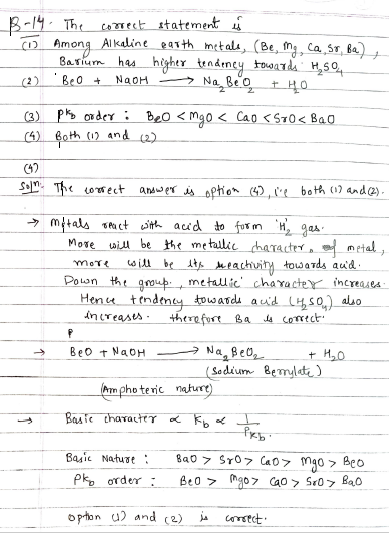 B-14. The correct statement is
(1) Among Alkaline earth metals, (Be, Mg, Ca, Sr, Ba),
Barium has higher tendency towards H₂SO₄
(2) BeO + NaOH ⟶ Na₂BeO₂ + H₂O
(3) pKb order : BeO < MgO < CaO < SrO < BaO
(4) Both (1) and (2)
(4)
Soln. The correct answer is option (4), i.e both (1) and (2).
→ Metals react with acid to form 'H₂' gas.
More will be the metallic character of metal,
more will be its reactivity towards acid.
Down the group, metallic character increases
Hence tendency towards acid (H₂SO₄) also
increases. therefore Ba is correct.
P
→ BeO + NaOH ⟶ Na₂BeO₂ + H₂O
(Sodium Berrylate)
(Amphoteric nature)
→ Basic character ∝ Kb ∝ 1/PKb.
Basic Nature : BaO > SrO > CaO > MgO > BeO
PKb order : BeO > MgO > CaO > SrO > BaO
option (1) and (2) is correct.